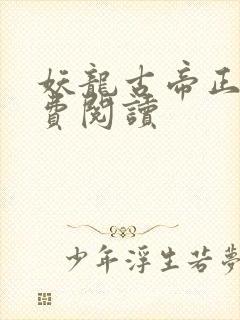 妖龍古帝正
費閱讀
少年浮生若夢